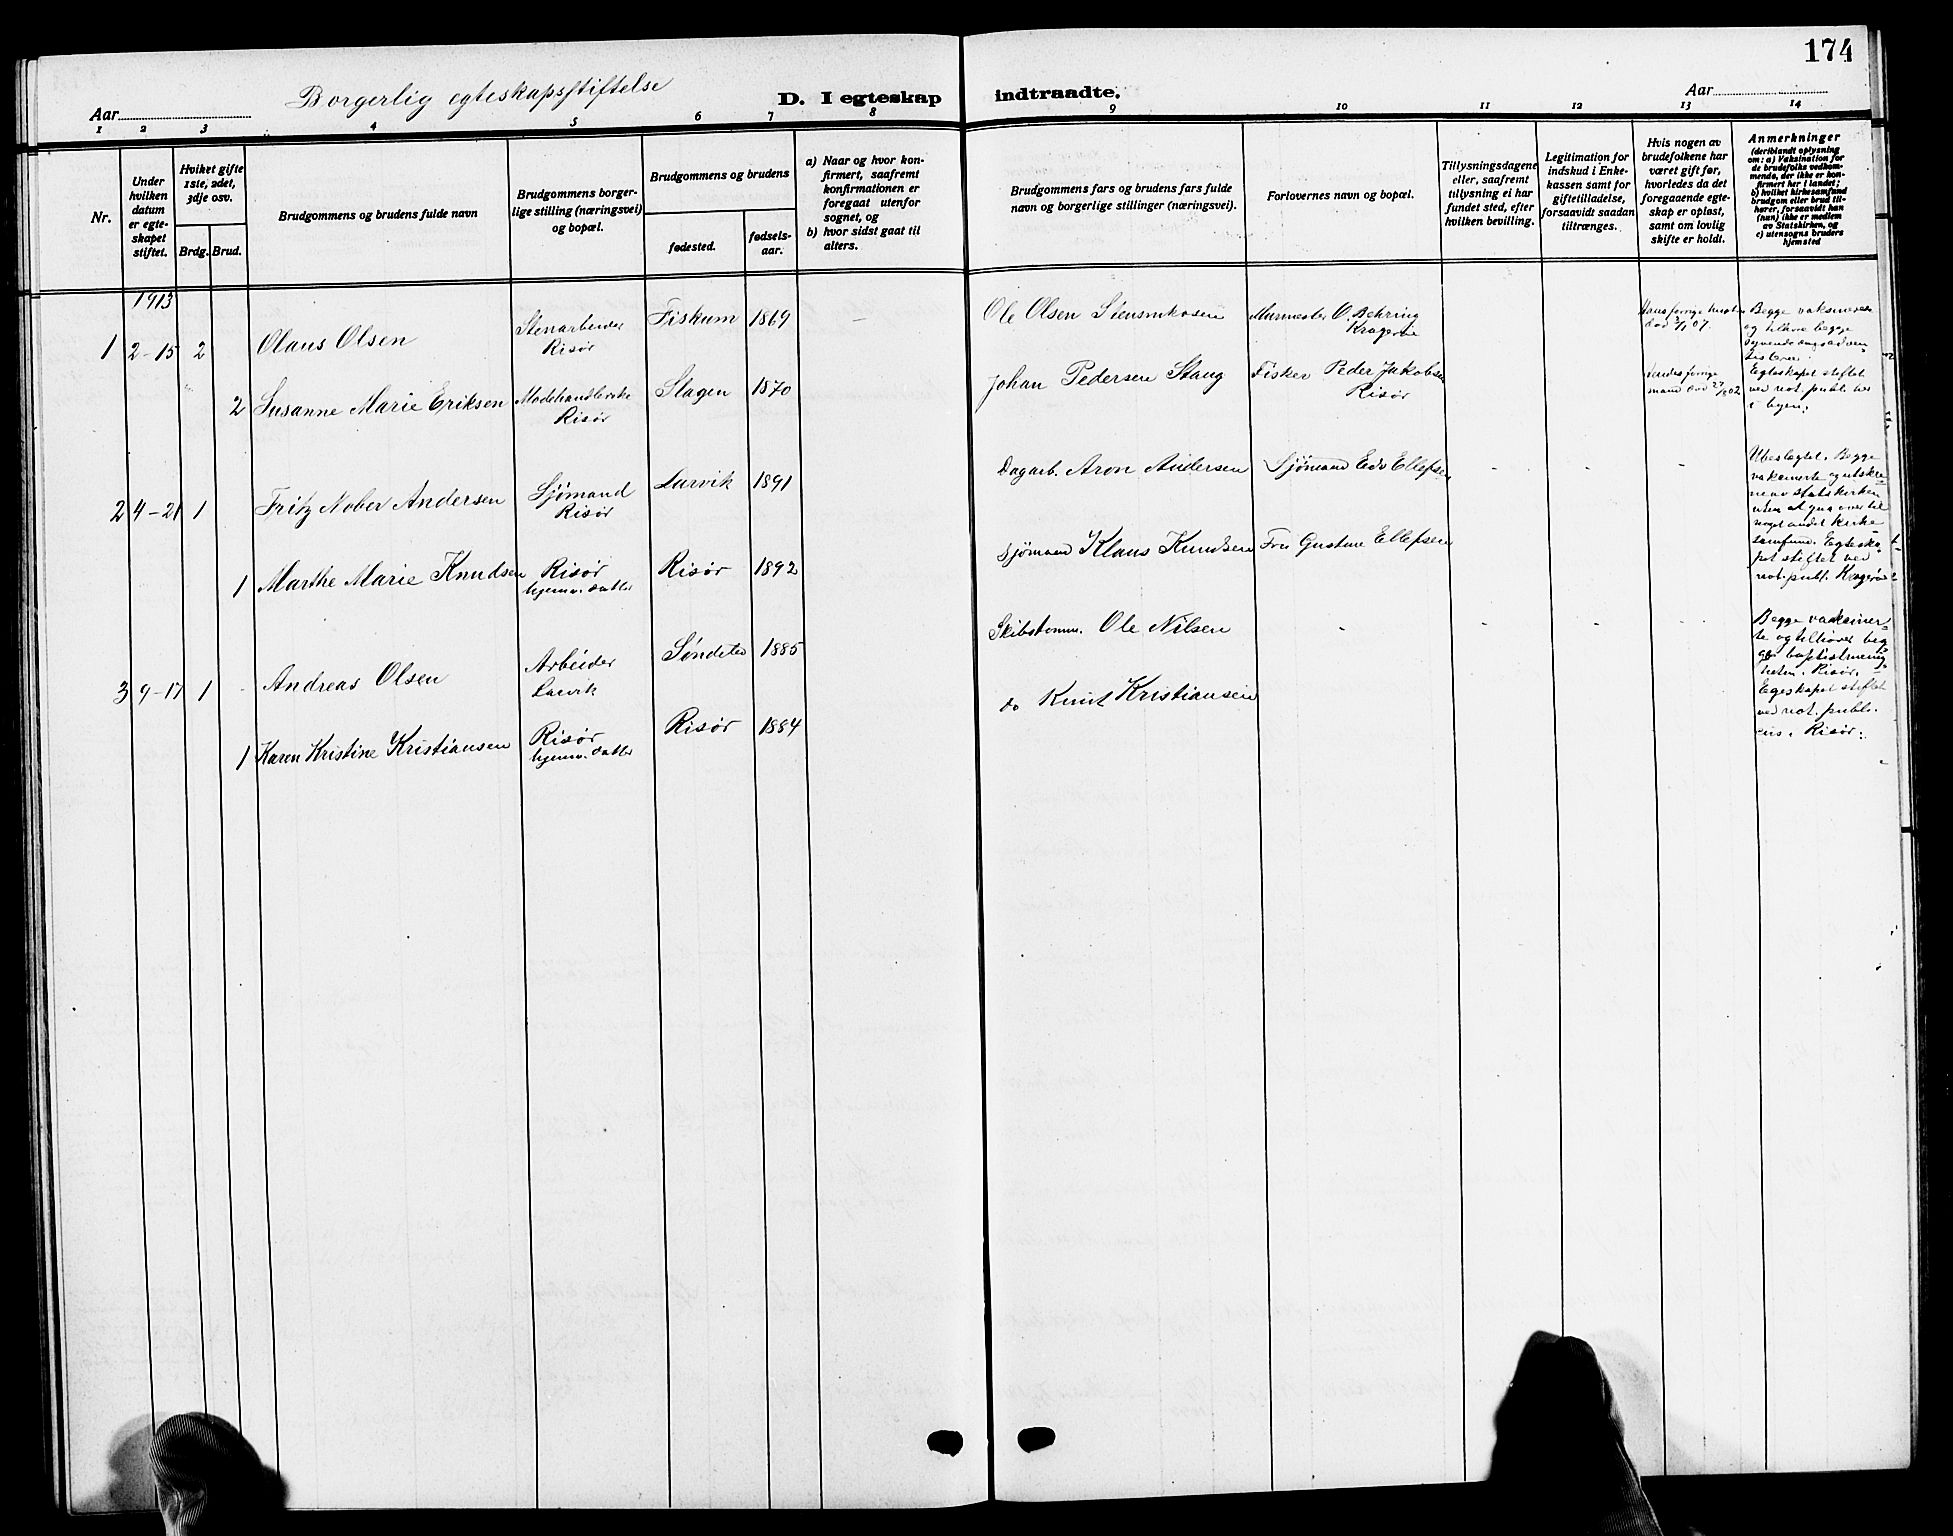 174
Borgerlig egteskapsstiftelse
Aar
D. I egteskap indtraadte.
Aar
1 2 3 4 5 6 7 8 9 10 11 12 13 14
Nr.
Under
hvilken
datum
er egte-
skapet
stiftet.
Hvilket gifte
1ste, 2det,
3dje osv.
Brdg. Brud.
Brudgommens og brudens fulde navn
Brudgommens borger-
lige stilling (næringsvei)
og bopæl.
Brudgommens og brudens
fødested.
fødsels-
aar.
a) Naar og hvor kon-
firmert, saafremt
konfirmationen er
foregaat utenfor
sognet, og
b) hvor sidst gaat til
alters.
Brudgommens fars og brudens fars fulde
navn og borgerlige stillinger (næringsvei).
Forlovernes navn og bopæl.
Tillysningsdagene
eller, saafremt
tillysning ei har
fundet sted, efter
hvilken bevilling.
Legitimation for
indskud i Enke-
kassen samt for
giftetilladelse,
forsaavidt saadan
tiltrænges.
Hvis nogen av
brudefolkene har
været gift før,
hvorledes da det
foregaaende egte-
skap er opløst,
samt om lovlig
skifte er holdt.
Anmerkninger
(deriblandt oplysning
om: a) Vaksination for
de brudefolks vedkom-
mende, der ikke er kon-
firmert her i landet;
b) hvilket kirkesamfund
brudgom eller brud til-
hører, forsaavidt han
(hun) ikke er medlem
av Statskirken, og
c) utensogns bruders
hjemsted
1913
1 2-15 2 Olaus Olsen
Stenarbeider
Risör
Fiskum 1869
Ole Olsen
Murmester O. Behring
Kragerø
død 3/1 07.
Begge vaksinerte
og tilhøre begge
2 Susanne Marie Eriksen
Modehandlerske
Risör
Slagen 1870
Johan Pedersen Stang
Fisker Peder Jakobsen
Risör
mand død 27/8 02
Egteskapet stiftet
ved not. publicus
i byen.
2 4-21 1 Fritz Nober Andersen
Sjømand
Risør
Larvik 1891
Dagarb. Aron Andersen
Sjømand Edv Ellefsen
- - -
Ubeslegtet. Begge
vaksinerte og utskre-
ne av statskirken
uten at gaa over til
noget andet kirke
samfund. Egteska-
pet stiftet ved
not. publ. Kragerø
1 Marthe Marie Knudsen
Risør
hjemv. datter
Risør 1892
Sjømand Klaus Knudsen
Fru Gustava Ellefsen
3 9-17 1 - Andreas Olsen
Arbeider
Larvik
Søndeled 1885
Skibstømm. Ole Nilsen
- - - -
Begge vaksiner-
te og tilhører beg
ge baptistmenig-
heten i Risør.
Egteskapet stiftet
ved not. publi-
cus i Risør.
1 Karen Kristine Kristiansen
Risør
hjemv. datter
Risør 1884
do Knut Kristiansen